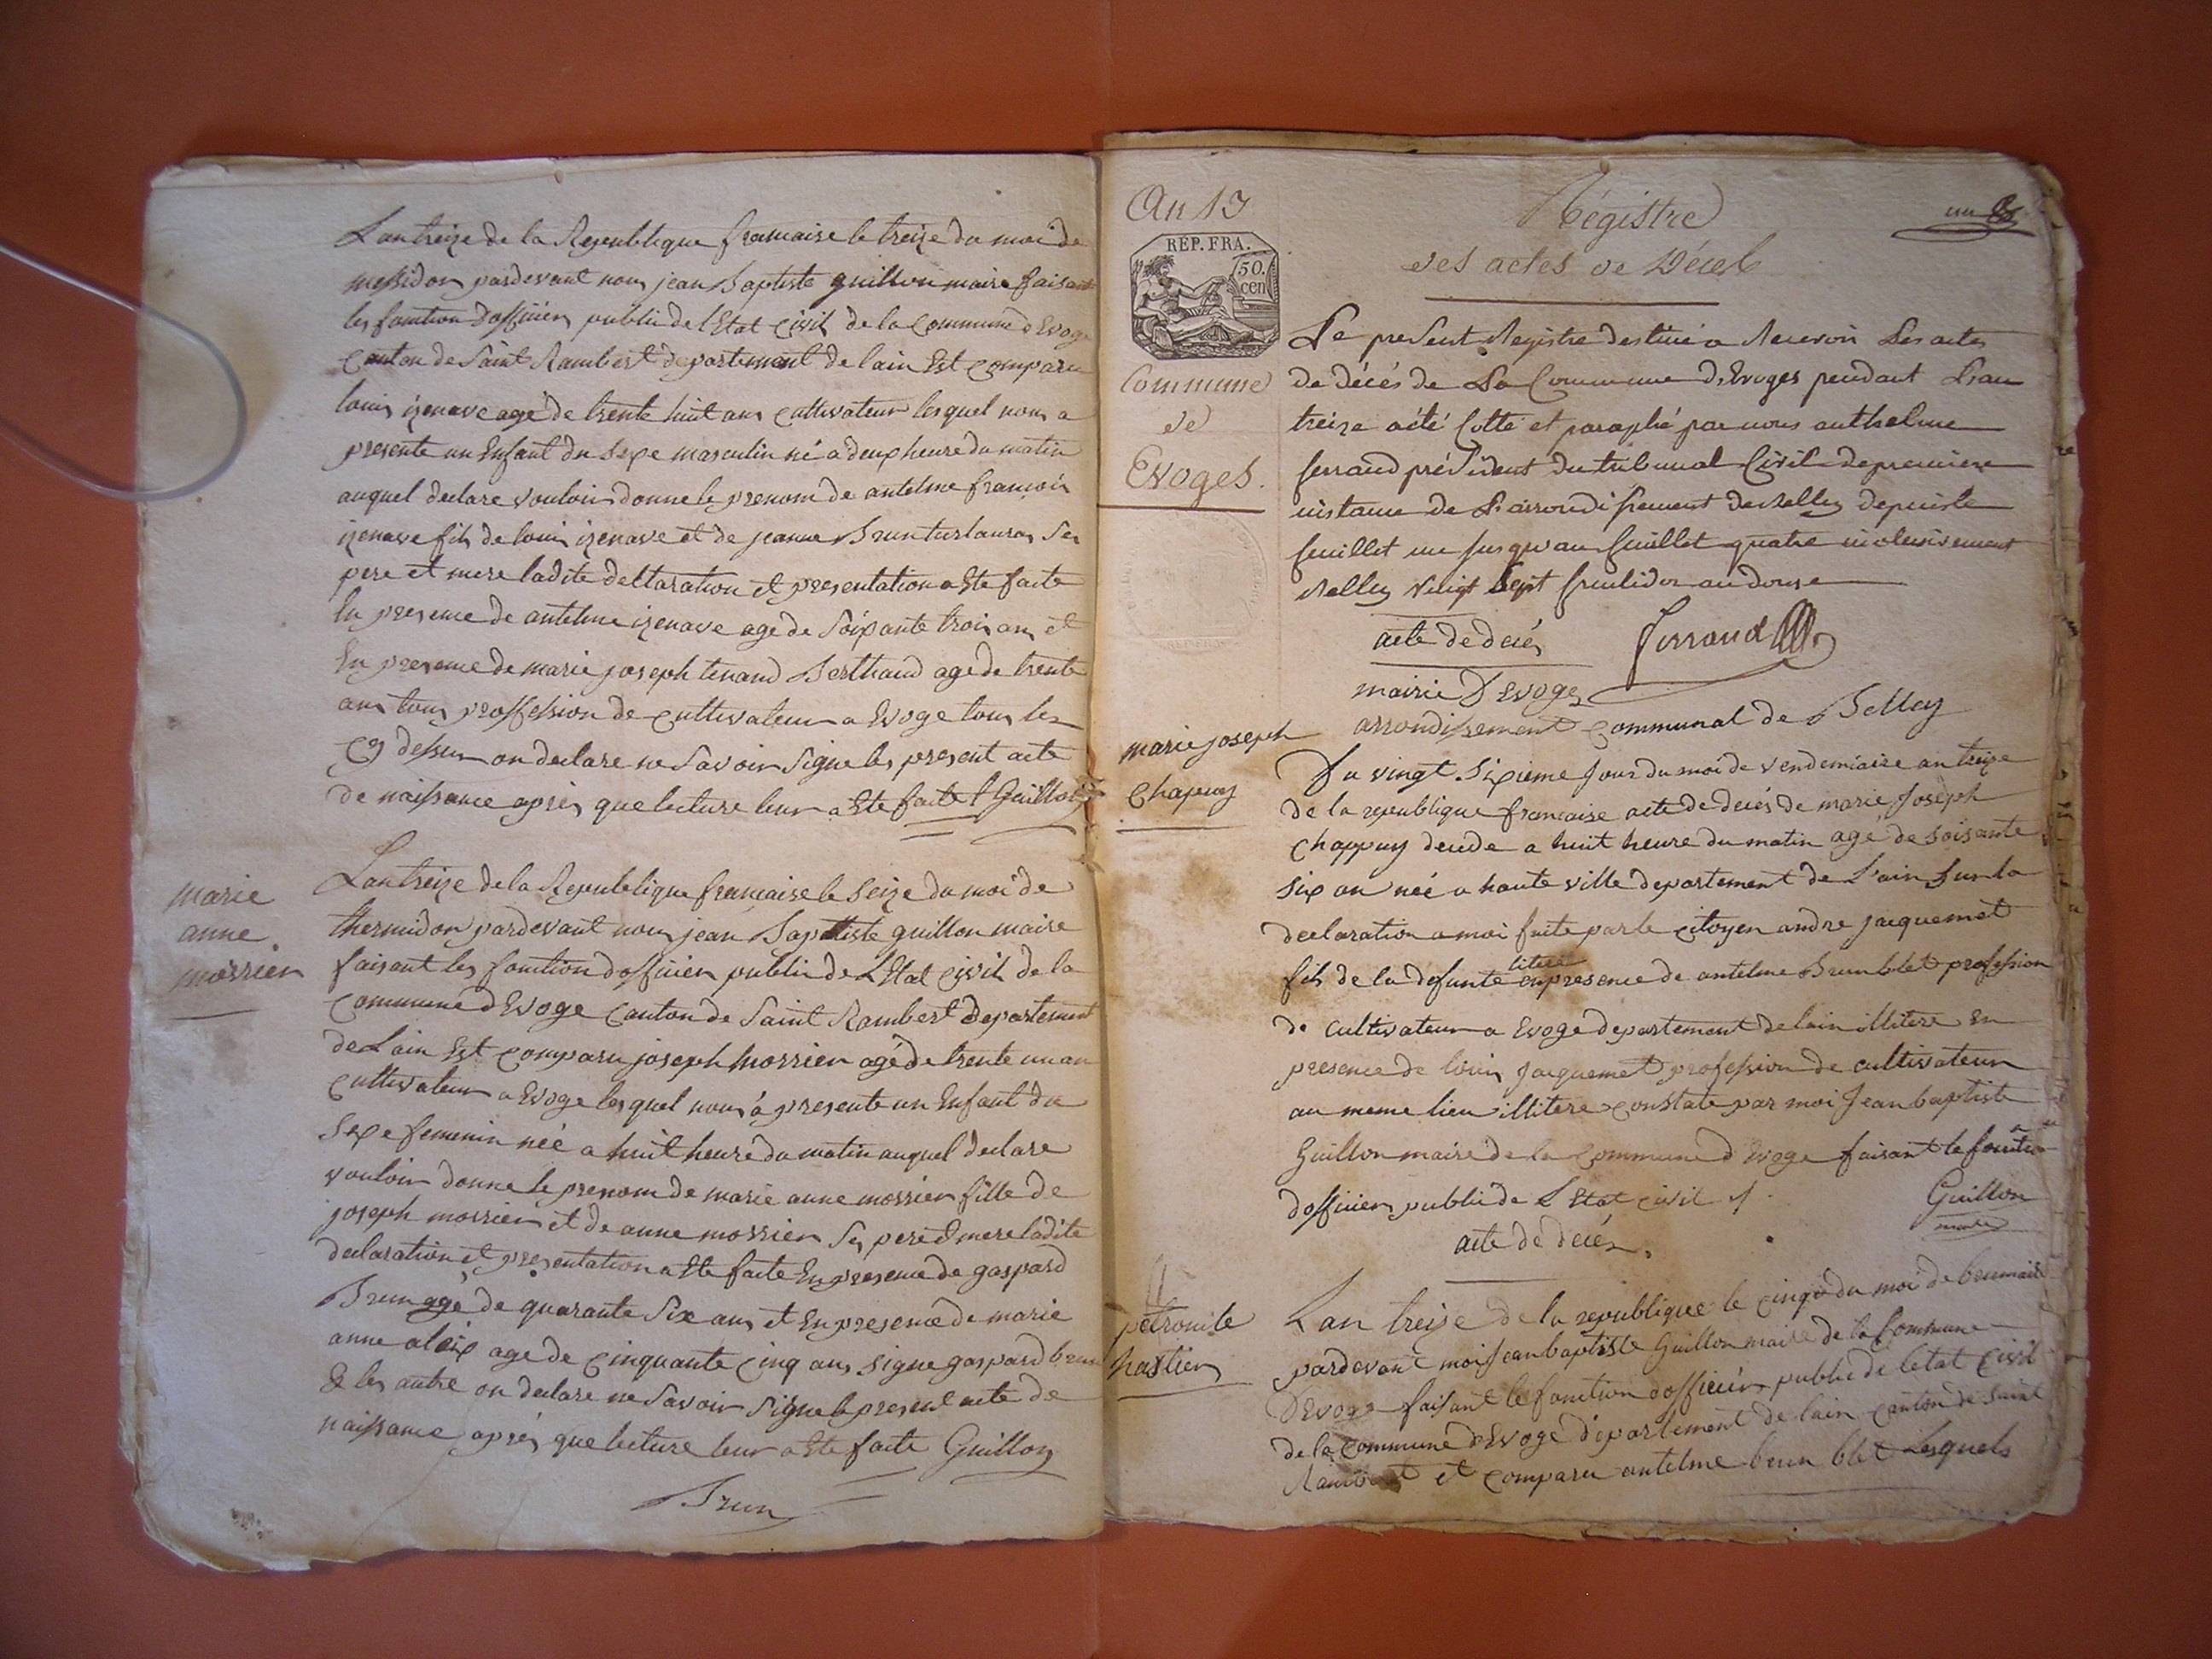 Lan treize de la Republique francaise le treize du moi de
messidor pardevant nous jean Baptiste guillon maire faisant
les fonction dofficier public de lEtat Civil de la Commune dEvoge
Canton de Saint Rambert departement de lain Est Comparu
louis izenave agé de trente huit ans Cultivateur lesquel nous a
presente un Enfant du sexe masculin né a deux heure du matin
auquel declare vouloir donne le prenom de antelme francois
izenave fils de louis izenave et de jeanne Brun ses
pere et mere ladite declaration et presentation a Ete faite
En presence de antelme izenave age de soixante trois ans et
En presence de marie joseph tenand Berthaud age de trente
ans tous proffession de Cultivateur a Evoge tous les
Cy dessus on declare ne Savoir Signe les present acte
de naissance apres que lecture leur a Ete faite Guillon
marie
anne
morrier
Lan treize de la Republique francaise le Seize du moi de
thermidor pardevant nous jean Baptiste guillon maire
faisant les fonction dofficier public de LEtat Civil de la
Commune dEvoge Canton de Saint Rambert departement
de Lain Est Comparu joseph morrier agé de trente un an
Cultivateur a Evoge lesquel nous a presente un Enfant du
Sexe femenin née a huit heure du matin auquel declare
vouloir donne le prenom de marie anne morrier fille de
joseph morrier et de anne morrier Ses pere et mere ladite
declaration et presentation a Ete faite En presence de gaspard
Brun agé de quarante Six ans et En presence de marie
anne aloix age de Cinquante Cinq ans signe gaspard brun
& les autre on declare ne Savoir Signe le present acte de
naissance apres que lecture leur a Ete faite Guillon
Brun
An 13
REP. FRA.
50.
cen
Commune
de
Evoges.
Régistre
des actes de Décès
un
Le present Registre destiné a Recevoir Les actes
de décés de La Commune d'Evoges pendant L'an
treize a été Cotté et paraphé par nous anthelme
ferrand président du tribunal Civil de premiere
instance de L'arrondissement de Belley depuis le
feuillet un jusqu'au feuillet quatre inclusivement
Belley Vingt Sept fructidor an douze
Ferrand
acte de decés
mairie D'Evoges
arrondissement Communal de Belley
marie joseph
Chapuy
Du vingt Sixieme Jour du moi de vendemiaire an treize
de la republique francaise acte de decés de marie Joseph
Chappuy decede a huit heure du matin agé de soisante
six an née a haute ville departement de L'ain Sur la
declaration a moi faite par le Citoyen andre jacquemet
fils de la defunte litere en presence de antelme Brun blet profession
de cultivateur a Evoge departement de lain illitere En
presence de louis Jacquemet profession de cultivateur
au meme lieu illitere Constate par moi Jean baptiste
Guillon maire de la Commune d'Evoge faisant le fonction
dofficier public de L'Etat Civil
Guillon
maire
acte de decés
petronite
Lan treize de la republique le Cinq du moi de brumaire
pardevant moi Jean baptiste Guillon maire de la Commune
D'Evoge faisant le fonction dofficier public de letat Civil
de la Commune d'Evoge departement de lain Canton de Saint
Rambert et Comparu antelme brun blet Lesquels